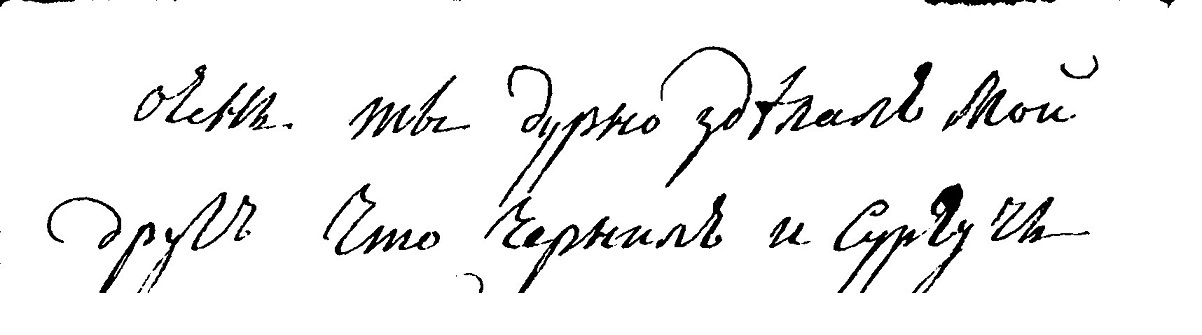 очень ты дурно здѣлалъ мой
другъ что чернилъ и сургучь